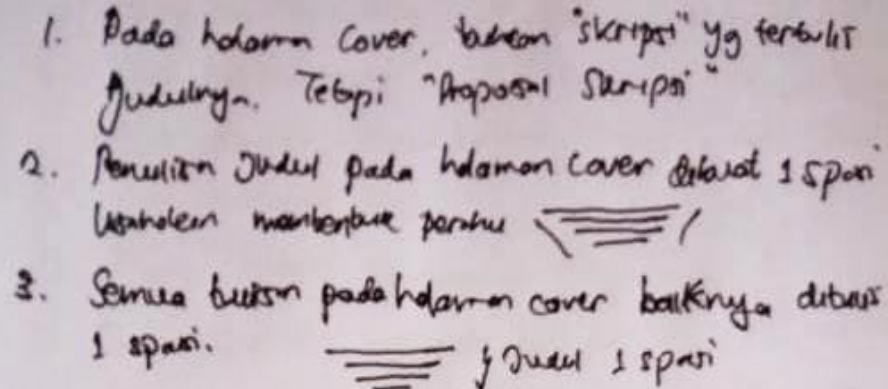 1. Pada halaman Cover, bukan "skripsi" yg tertulis
Judulnya. Tetapi "Proposal Skripsi"
2. Penulisan Judul pada halaman cover dibuat 1 spasi
Usahakan membentuk perahu
3. Semua tulisan pada halaman cover baiknya ditulis
1 spasi.
Judul 1 spasi